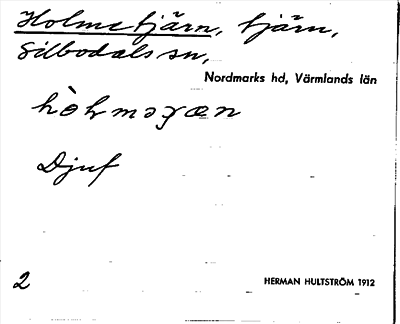 Holmetjärn, tjärn,
Silbodals sn,
Nordmarks hd, Värmlands län
hòɫməɣæn
Djuf
2
HERMAN HULTSTRÖM 1912